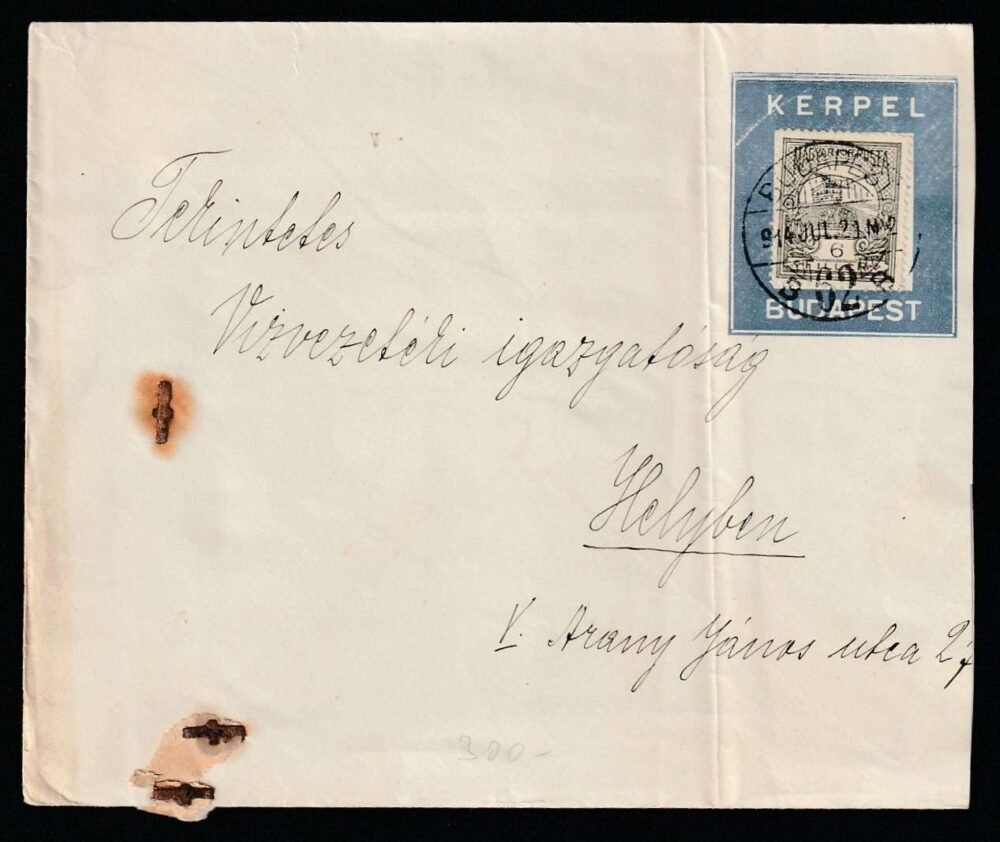 KERPEL
MAGYAR KIR. POSTA
BUDAPEST
914 JUL. 21. N 12
6
62
BUDAPEST
Tekintetes
Vizvezetéki igazgatóság
Helyben
V. Arany János utca 27
300-